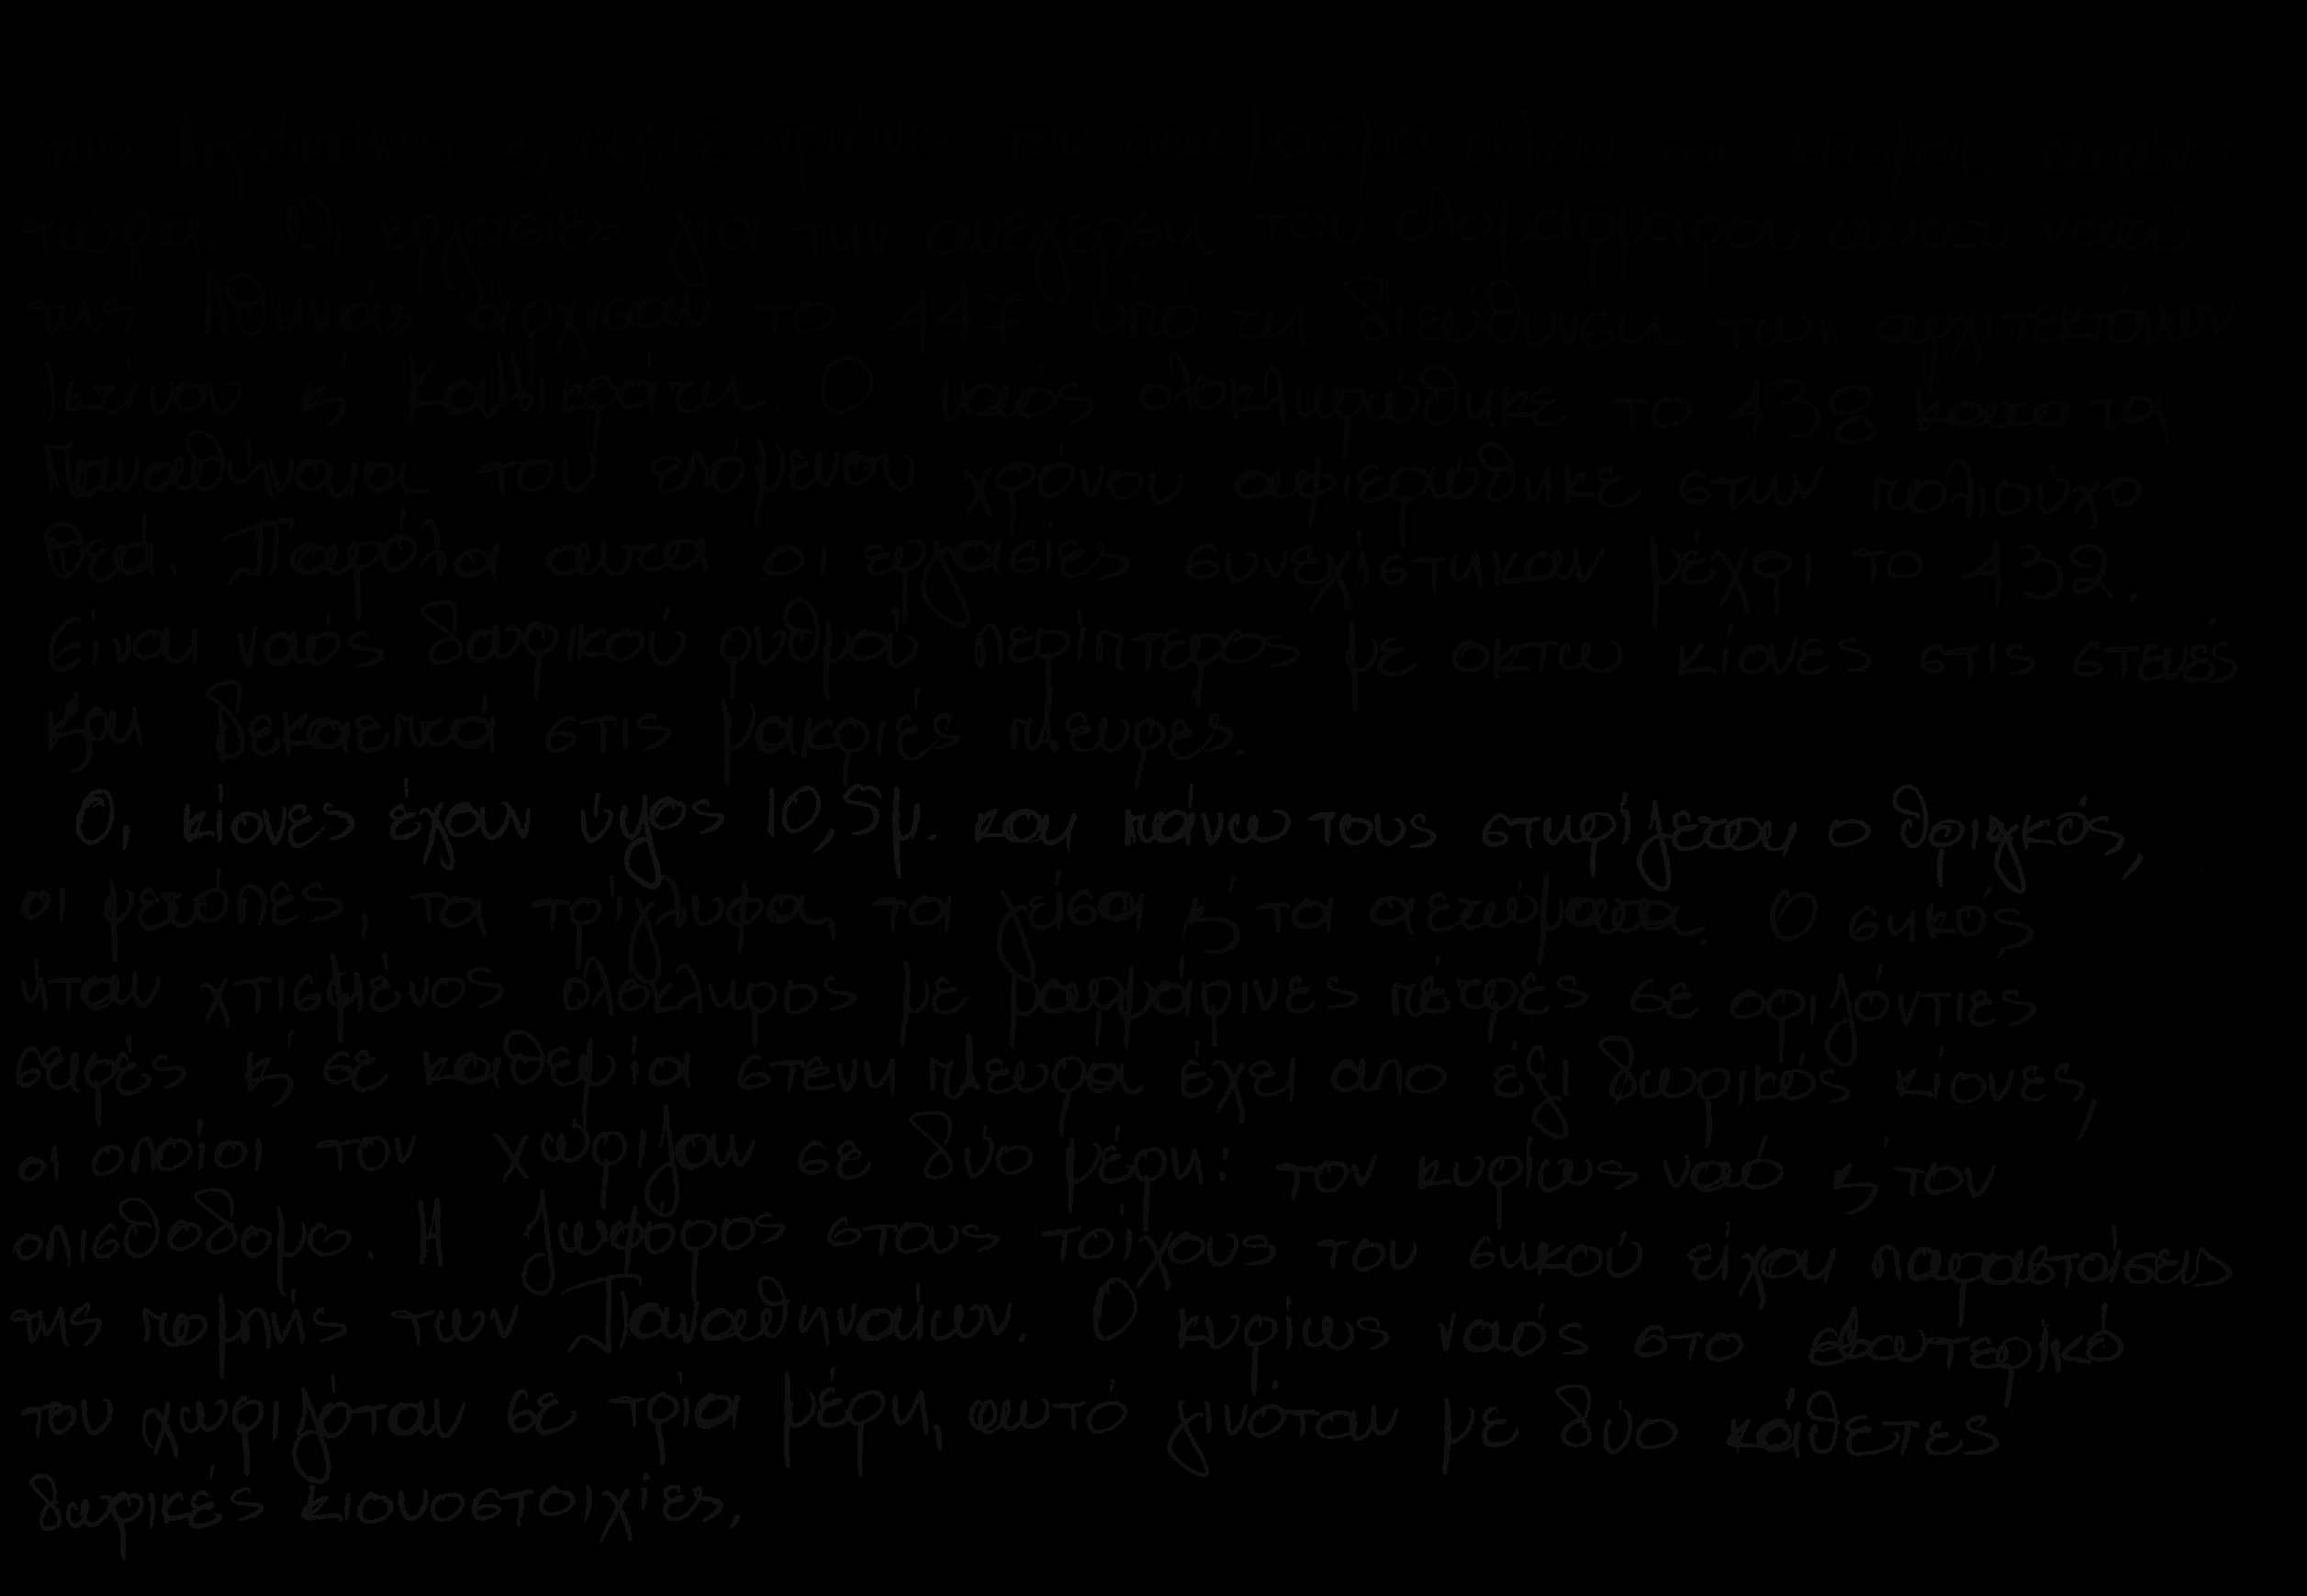 Ο Παρθενώνας είναι το μεγαλύτερο κ επισημότερο οικοδόμημα
της Ακρόπολης κ συγκεντρώνει τον θαυμασμό όλου του κόσμου αιώνες
τώρα. Οι εργασίες για την ανέγερση του ολομάρμαρου αυτου ναού
της Αθηνάς άρχισαν το 447 υπό τη διεύθυνση των αρχιτεκτόνων
Ικτίνου κ Καλλικράτη. Ο ναός ολοκληρώθηκε το 438 κατα τα
Παναθήναια του επόμενου χρόνου αφιερώθηκε στην πολιούχο
θεά. Παρόλα αυτα οι εργασίες συνεχίστηκαν μέχρι το 432.
Είναι ναός δωρικού ρυθμού περίπτερος με οκτω κίονες στις στενές
και δεκαεπτά στις μακριές πλευρές.
Οι κίονες έχουν ύψος 10,5μ. και πάνω τους στηρίζεται ο θριγκός,
οι μετόπες, τα τρίγλυφα, τα γείσα κ τα αετώματα. Ο σηκός
ήταν χτισμένος ολόκληρος με μαρμάρινες πέτρες σε οριζόντιες
σειρές κ σε καθεμία στενη πλευρα έχει απο έξι δωρικός κίονες,
οι οποίοι τον χώριζαν σε δύο μέρη: τον κυρίως ναό κ τον
οπισθοδομο. Η ζωφορος στους τοίχους του σηκού είχαν παραστάσεις
της πομπής των Παναθηναίων. Ο κυρίως ναός στο εσωτερικό
του χωριζόταν σε τρία μέρη, αυτό γινόταν με δύο κάθετες
δωρικές κιονοστοιχίες.